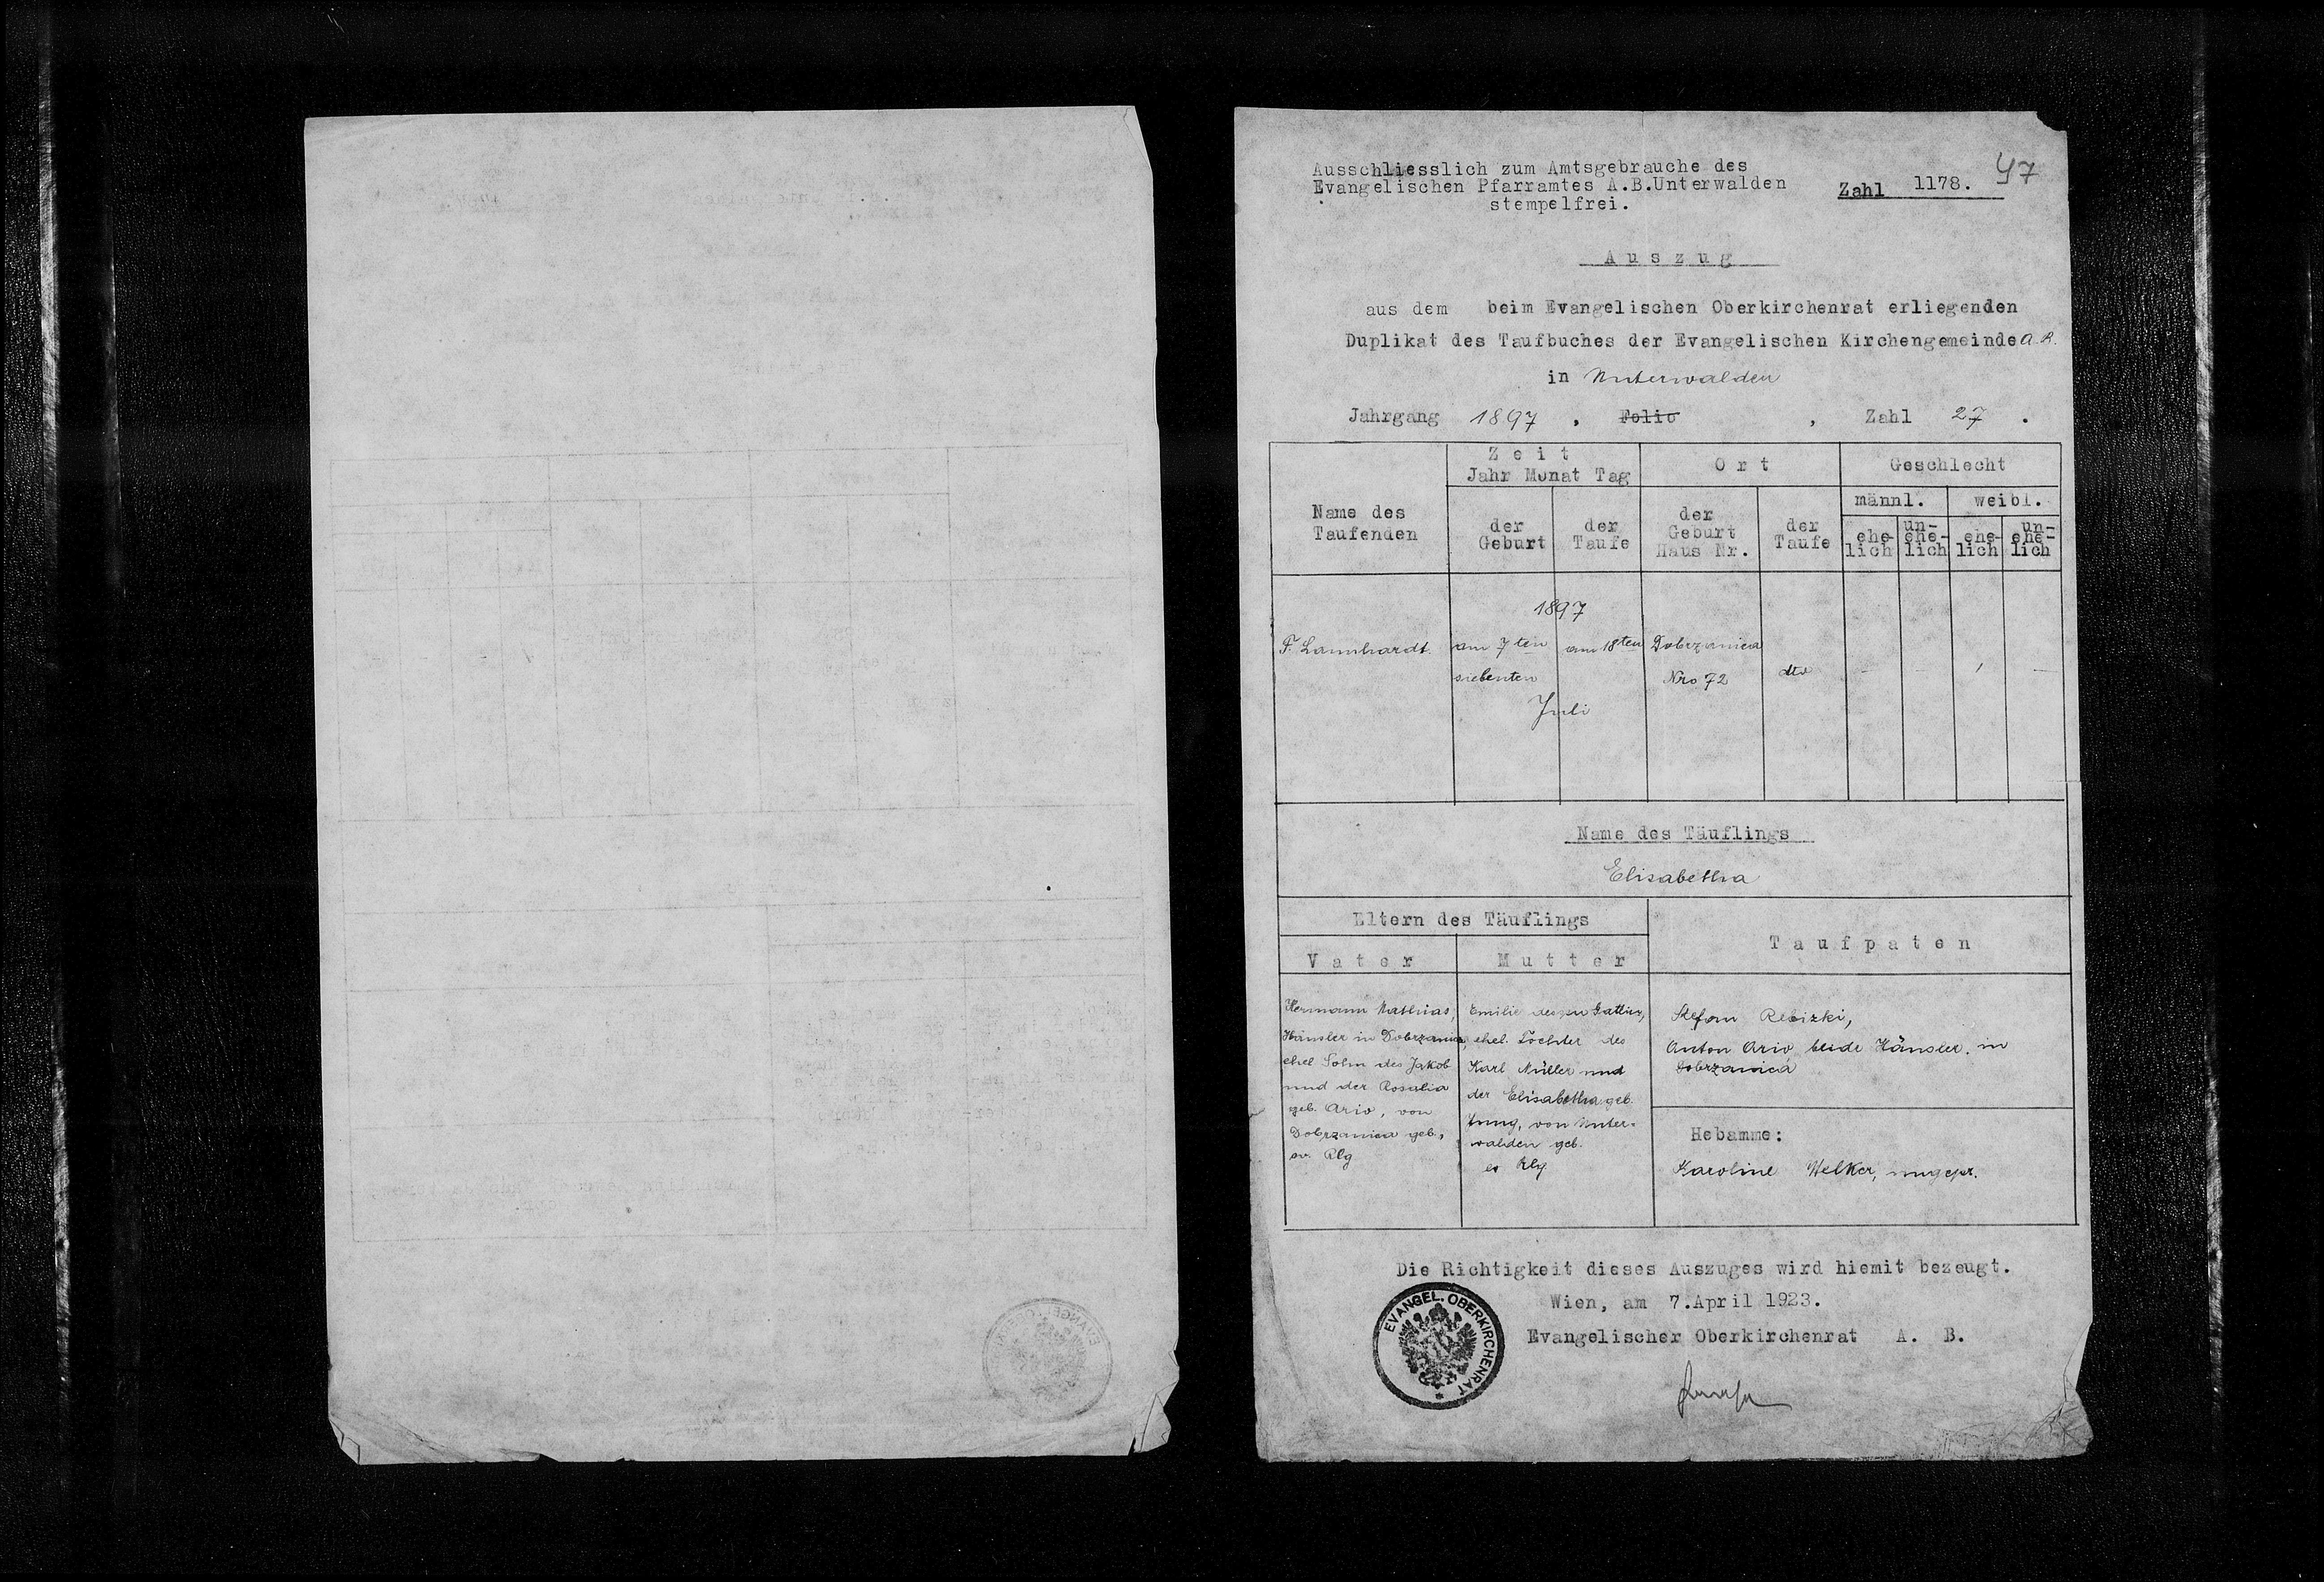 Ausschliesslich zum Amtsgebrauche des
Evangelischen Pfarramtes A.B.Unterwalden
stempelfrei.
Zahl 1178.
47
Auszug
aus dem beim Evangelischen Oberkirchenrat erliegenden
Duplikat des Taufbuches der Evangelischen Kirchengemeinde A.B.
in Unterwalden
Jahrgang 1897 , Folio , Zahl 27 .
Name des
Taufenden
Zeit
Jahr Monat Tag
der
Geburt
der
Taufe
Ort
der
Geburt
Haus Nr.
der
Taufe
Geschlecht
männl. weibl.
ehe-
lich
un-
ehe-
lich
ehe-
lich
un-
ehe-
lich
1897
F. Lannhardt. am 7ten am 18ten Dobrzanica
siebenten Nro 72 dto — — / —
Juli
Name des Täuflings
Elisabetha
Eltern des Täuflings
Vater
Mutter
Taufpaten
Hermann Mathias,
Hänsler in Dobrzanica,
ehel Sohn des Jakob
und der Rosalia
geb. Ario, von
Dobrzanica geb.,
ev. Rlg
Emilie dessen Gattin,
ehel. Tochter des
Karl Müller und
der Elisabetha geb.
Jung, von Unter-
walden geb.
ev Rlg
Stefan Rebizki,
Anton Ario beide Hänsler in
Dobrzanica
Hebamme:
Karoline Welker, ungepr.
Die Richtigkeit dieses Auszuges wird hiemit bezeugt.
Wien, am 7.April 1923.
Evangelischer Oberkirchenrat A. B.
EVANGEL. OBERKIRCHENRAT